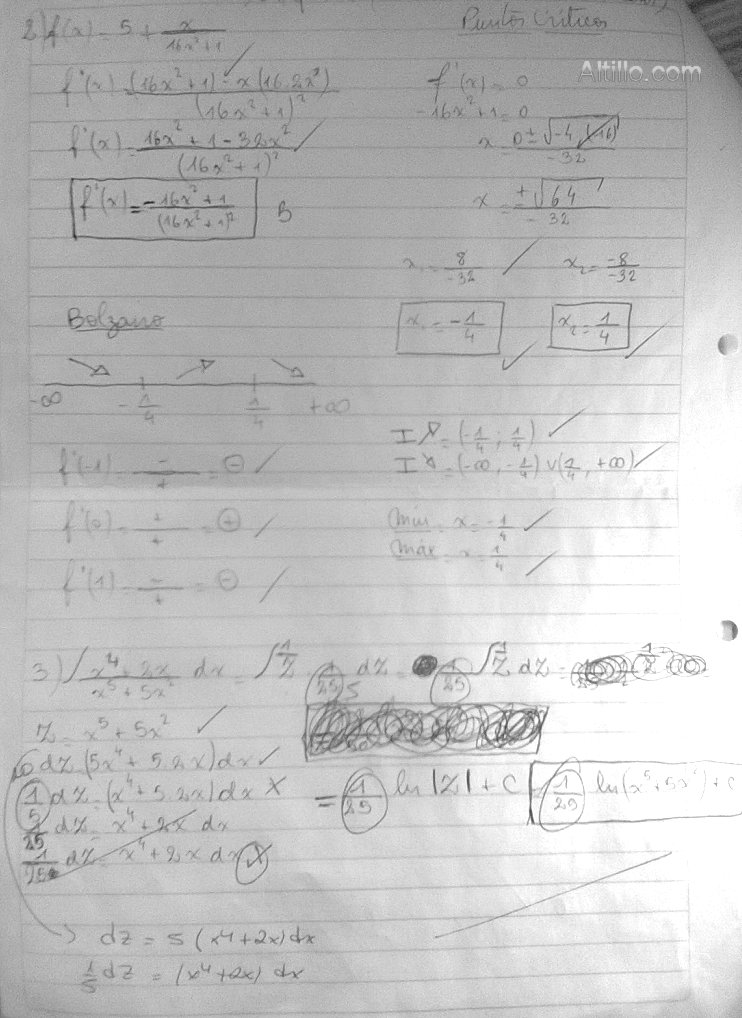 Puntos Críticos
Altillo.com
2) f(x) = 5 + x/(16x²+1)
f'(x) = ((16x²+1) - x(16.2x²))/(16x²+1)²
f'(x) = 0
-16x²+1 = 0
f'(x) = (16x²+1-32x²)/(16x²+1)²
x = (0 ± √(-4.(-16)))/-32
f'(x) = (-16x²+1)/(16x²+1)² B
x = ±√64/-32
x₁ = 8/-32 x₂ = -8/-32
Bolzano
x₁ = -1/4 x₂ = 1/4
-∞ -1/4 1/4 +∞
I↗ = (-1/4 ; 1/4)
f'(-1) = -/+ = ⊖
I↘ = (-∞, -1/4) ∨ (1/4, +∞)
f'(0) = +/+ = ⊕
mín = x = -1/4
máx = x = 1/4
f'(1) = -/+ = ⊖
3) ∫ (x⁴+2x)/(x⁵+5x²) dx = ∫ 1/z 1/25 dz = 1/25 ∫ 1/z dz =
z = x⁵ + 5x²
dz = (5x⁴ + 5.2x) dx
1/5 dz = (x⁴ + 5.2x) dx X
= 1/25 ln |z| + c = 1/25 ln(x⁵+5x²) + c
1/25 dz = x⁴ + 2x dx
1/25 dz = x⁴ + 2x dx X
dz = 5 (x⁴+2x) dx
1/5 dz = (x⁴+2x) dx